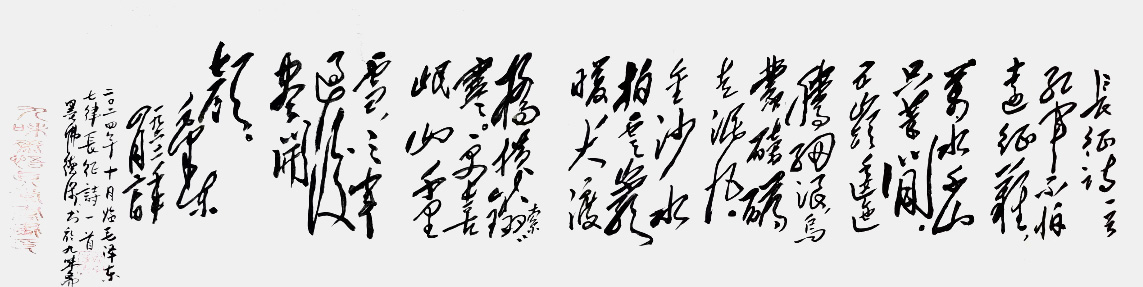 長征诗一首
紅軍不怕
遠征難，
萬水千山
只等閒。
五嶺逶迤
騰細浪，烏
蒙磅礴
走泥丸。
金沙水
拍雲崖
暖，大渡
橋橫鐵索
寒。更喜
岷山千里
雪，三軍
過後
盡開
顏。
毛澤東
二〇二四年十月临毛泽东
七律長征詩一首